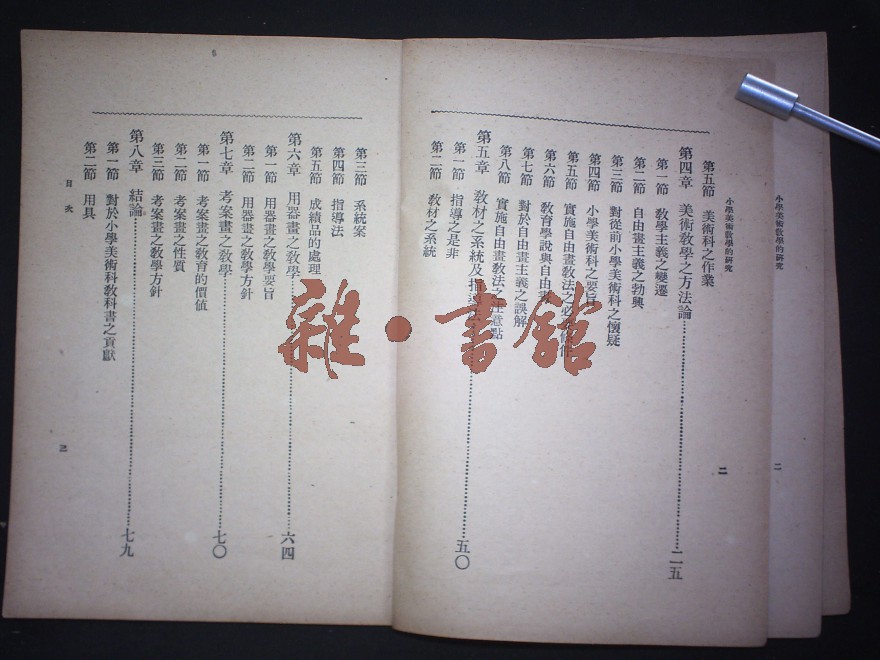 小學美術教學的研究
二
小學美術教學的研究
二
第五節 美術科之作業
第四章 美術教學之方法論……二五
第一節 教學主義之變遷
第二節 自由畫主義之勃興
第三節 對從前小學美術科之懷疑
第四節 小學美術科之要旨
第五節 實施自由畫教法之必要條件
第六節 教育學說與自由畫
第七節 對於自由畫主義之誤解
第八節 實施自由畫教法之注意點
第五章 教材之系統及指導……五〇
第一節 指導之是非
第二節 教材之系統
第三節 系統案
第四節 指導法
第五節 成績品的處理
第六章 用器畫之教學……六四
第一節 用器畫之教學要旨
第二節 用器畫之教學方針
第七章 考案畫之教學……七〇
第一節 考案畫之教育的價值
第二節 考案畫之性質
第三節 考案畫之教學方針
第八章 結論……七九
第一節 對於小學美術科教科書之貢獻
第二節 用具
目次
三
雜·書館